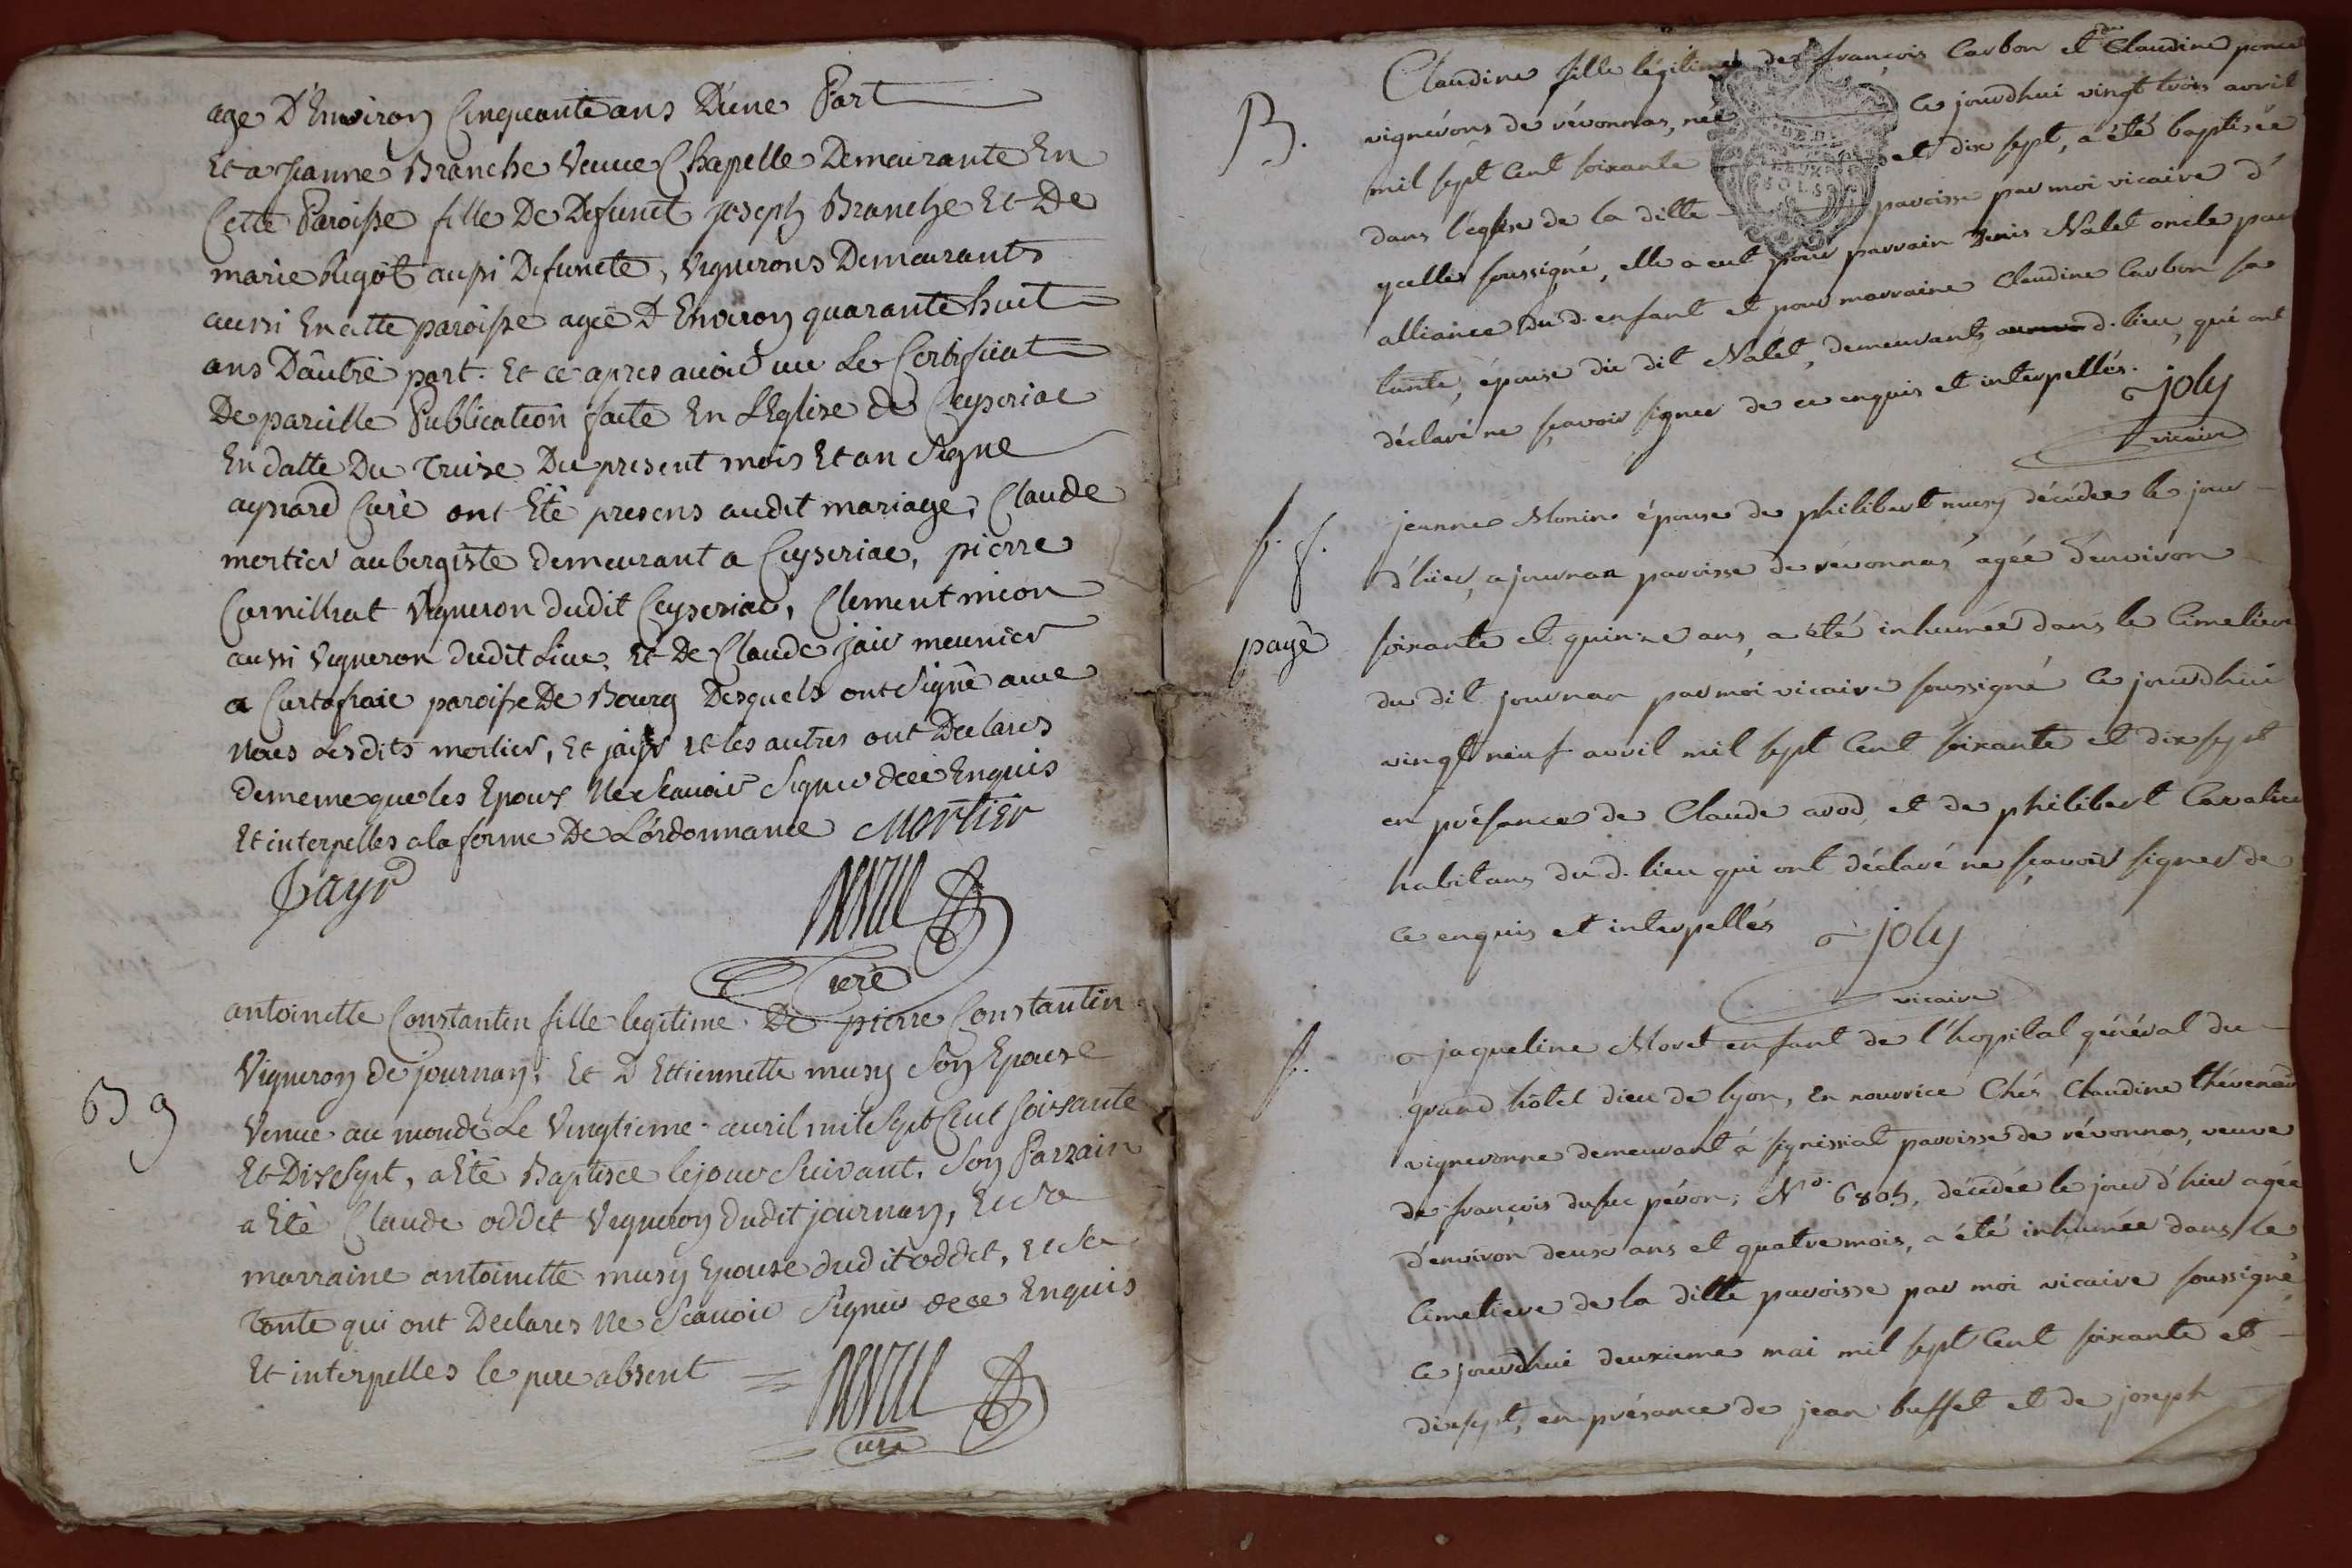 age D'Environ Cinquante ans D'une Part
Et a Jeanne Branche Veuve Chapelle Demeurante En
Cette Paroisse fille De Defunct joseph Branche Et De
marie hugot aussi Defuncte, Vignerons Demeurants
aussi En cette paroisse agée D Environ quarante huit
ans D'autre part. Et ce apres avoir vu Le Certificat
De pareille Publication faite En L'Eglise de Ceyseriac
En datte Du Treise Du present mois Et an Signe
aynard Curé ont Eté presens audit mariage, Claude
mortier aubergiste demeurant a Ceyseriac, pierre
Cornillrat Vigneron dudit Ceyseriac, Clement mion
aussi Vigneron dudit Lieu, Et De Claude jair meunier
a Curtafraie paroisse De Bourg Desquels ont Signé avec
Nous Lesdits mortier, Et jayr et les autres ont Declares
De meme que les Epoux Ne Scavoir Signer de ce Enquis
Et interpelles a la forme De L'ordonnance Mortier
Jayr
Curé
antoinette Constantin fille legitime De pierre Constantin
Vigneron de journan, Et D Ettiennette musy Son Epouse
B g
Venue au monde Le Vingtieme avril mil Sept Cent Soixante
Et Dix Sept, a Eté Baptisée le jour Suivant. Son Parrain
a Eté Claude oddet Vigneron dudit journan, Et Sa
marraine antoinette musy Epouse dudit oddet, Et Sa
Tante qui ont Declares Ne Scavoir Signer de ce Enquis
Et interpelles le pere absent
Curé
Claudine fille légitime de françois Carbon et de Claudine
B.
vignérons de révonnas, née ce jourdhui vingt trois avril
mil sept cent soixante et dix sept, a été baptisée
dans l'église de la ditte paroisse par moi vicaire d'
ycelles soussigné, elle a eut pour parrain Denis Nalet oncle par
alliance du d. enfant et pour marraine Claudine Carbon sa
tante, épouse du dit Nalet, demeurants d. lieu, qui ont
déclaré ne sçavoir signer de ce enquis et interpellés.
joly
vicaire
f. f.
jeanne Monin épouse de philibert musy décédée le jour
d'hier, a journan paroisse de révonnas agée d'environ
payé
soixante et quinze ans, a été inhumée dans le Cimetiere
du dit journan par moi vicaire soussigné ce jourdhui
vingt neuf avril mil sept cent soixante et dix sept
en présance de Claude avod et de philibert Cavalier
habitans du d. lieu qui ont déclaré ne sçavoir signer de
ce enquis et interpellés joly
vicaire
f.
jaqueline Moret enfant de l'hopital général du
grand hôtel dieu de lyon, en nourrice chés Claudine thévenard
vigneronne demeurant à signissiat paroisse de révonnas, veuve
de françois dufuc péron, No. 6805, décédée le jour d'hier agée
d'environ deux ans et quatre mois, a été inhumée dans le
Cimetiere de la ditte paroisse par moi vicaire soussigné
ce jourdhui deuxieme mai mil sept cent soixante et
dix sept, en présance de jean buffet et de joseph